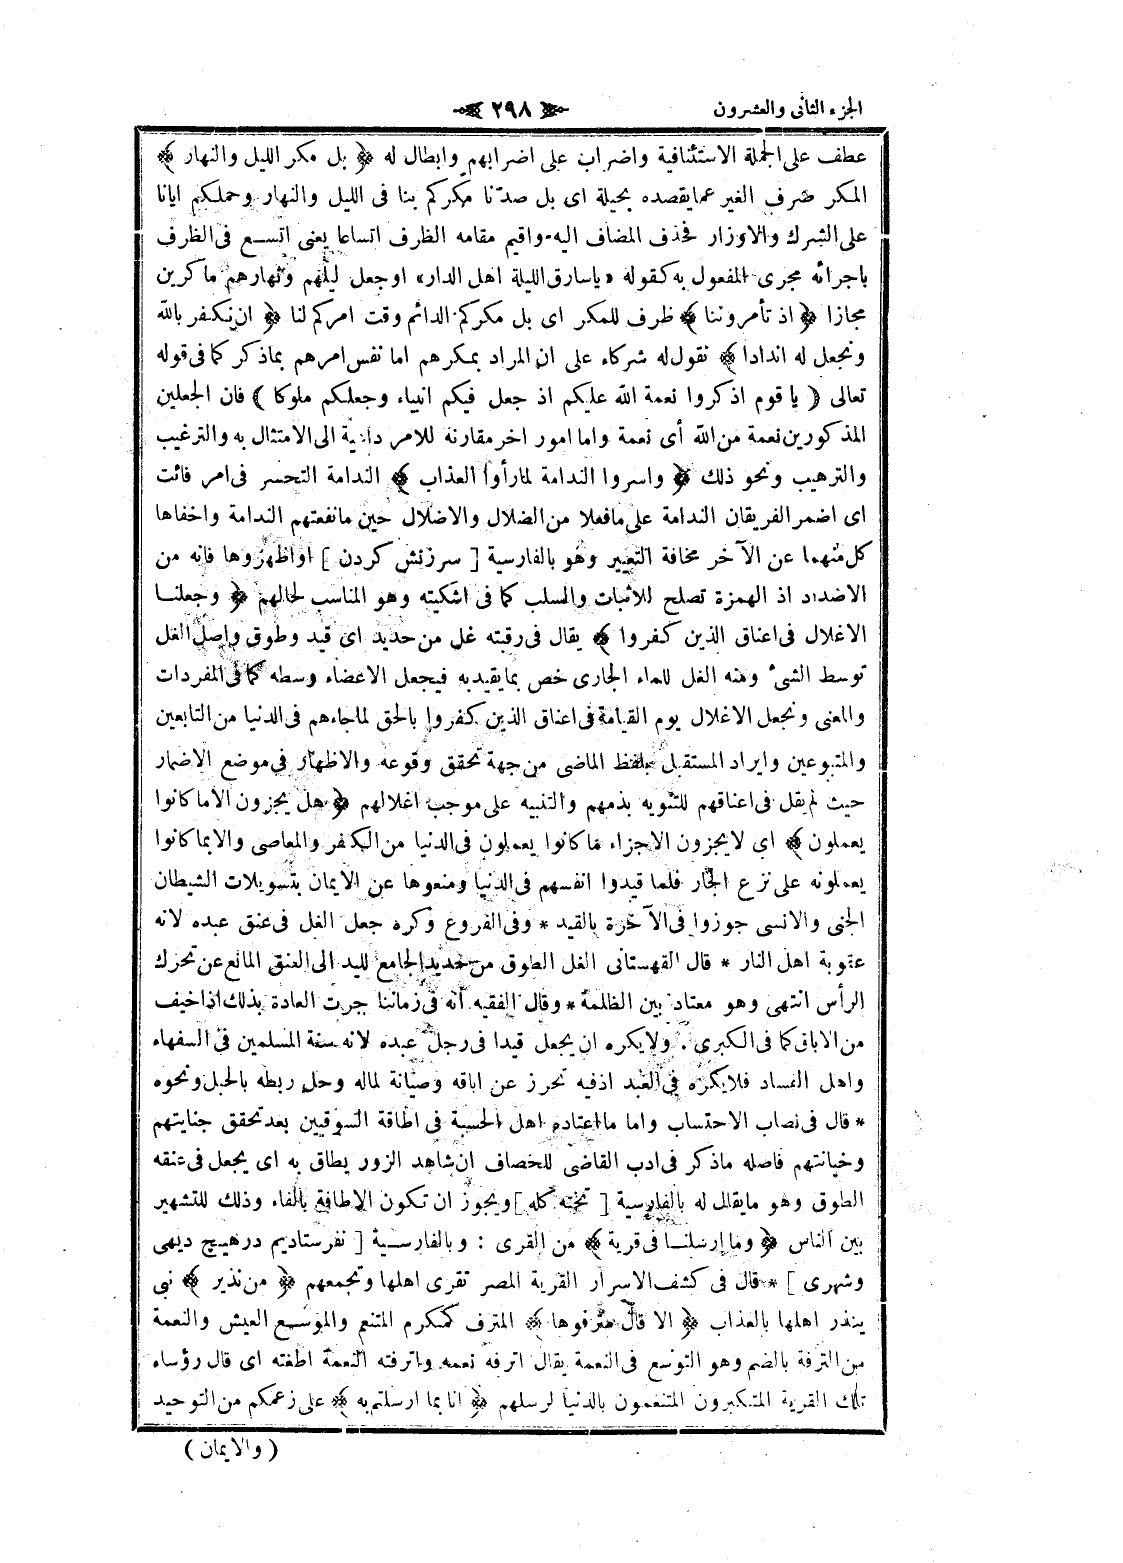 الجزء الثانى والعشرون
﴿ ٢٩٨ ﴾
عطف على الجملة الاستئنافية واضراب على اضرابهم وابطال له ﴿ بل مكر الليل والنهار ﴾
المكر صرف الغير عمايقصده بحيلة اى بل صدّنا مكركم بنا فى الليل والنهار وحملكم ايانا
على الشرك والاوزار فحذف المضاف اليه واقيم مقامه الظرف اتساعا يعنى اتسع فى الظرف
باجرائه مجرى المفعول به كقوله «ياسارق الليلة اهل الدار» اوجعل ليلهم ونهارهم ماكرين
مجازا ﴿ اذ تأمروننا ﴾ ظرف للمكر اى بل مكركم الدائم وقت امركم لنا ﴿ ان نكفر بالله
ونجعل له اندادا ﴾ نقول له شركاء على ان المراد بمكرهم اما نفس امرهم بماذكر كما فى قوله
تعالى ( يا قوم اذكروا نعمة الله عليكم اذ جعل فيكم انبياء وجعلكم ملوكا ) فان الجعلين
المذكورين نعمة من الله أى نعمة واما امور اخر مقارنة للامر داعية الى الامتثال به والترغيب
والترهيب ونحو ذلك ﴿ واسروا الندامة لمارأوا العذاب ﴾ الندامة التحسر فى امر فائت
اى اضمر الفريقان الندامة على مافعلا من الضلال والاضلال حين مانفعتهم الندامة واخفاها
كل منهما عن الآخر مخافة التعيير وهو بالفارسية [ سرزنش كردن ] اواظهروها فانه من
الاضداد اذ الهمزة تصلح للاثبات والسلب كما فى اشكيته وهو المناسب لحالهم ﴿ وجعلنا
الاغلال فى اعناق الذين كفروا ﴾ يقال فى رقبته غل من حديد اى قيد وطوق واصل الغل
توسط الشئ ومنه الغل للماء الجارى خص بمايقيدبه فيجعل الاعضاء وسطه كما فى المفردات
والمعنى ونجعل الاغلال يوم القيامة فى اعناق الذين كفروا بالحق لماجاءهم فى الدنيا من التابعين
والمتبوعين وايراد المستقبل بلفظ الماضى من جهة تحقق وقوعه والاظهار فى موضع الاضمار
حيث لم يقل فى اعناقهم للتنويه بذمهم والتنبيه على موجب اغلالهم ﴿ هل يجزون الاماكانوا
يعملون ﴾ اى لايجزون الاجزاء ماكانوا يعملون فى الدنيا من الكفر والمعاصى والابماكانوا
يعملونه على نزع الجار فلما قيدوا انفسهم فى الدنيا ومنعوها عن الايمان بتسويلات الشيطان
الجنى والانسى جوزوا فى الآخرة بالقيد * وفى الفروع وكره جعل الغل فى عنق عبده لانه
عقوبة اهل النار * قال القهستانى الغل الطوق من حديد الجامع لليد الى العنق المانع عن تحرك
الرأس انتهى وهو معتاد بين الظلمة * وقال الفقيه انه فى زماننا جرت العادة بذلك اذاخيف
من الاباق كما فى الكبرى . ولايكره ان يجعل قيدا فى رجل عبده لانه سنة المسلمين فى السفهاء
واهل الفساد فلايكره فى العبد اذفيه تحرز عن اباقه وصيانة لماله وحل ربطه بالحبل ونحوه
* قال فى نصاب الاحتساب واما مااعتاده اهل الحسبة فى اطافة السوقيين بعد تحقق جنايتهم
وخيانتهم فاصله ماذكر فى ادب القاضى للخصاف ان شاهد الزور يطاف به اى يجعل فى عنقه
الطوق وهو مايقال له بالفارسية [ تخته كله ] ويجوز ان تكون الاطافة بالفاء وذلك للتشهير
بين الناس ﴿ وماارسلنا فى قرية ﴾ من القرى : وبالفارسية [ نفرستاديم درهيچ ديهى
وشهرى ] * قال فى كشف الاسرار القرية المصر تقرى اهلها وتجمعهم ﴿ من نذير ﴾ نبى
ينذر اهلها بالعذاب ﴿ الا قال مترفوها ﴾ المترف كمكرم المتنعم والموسع العيش والنعمة
من الترفة بالضم وهو التوسع فى النعمة يقال اترفه نعمه واترفته النعمة اطغته اى قال رؤساء
تلك القرية المتكبرون المتنعمون بالدنيا لرسلهم ﴿ انا بما ارسلتم به ﴾ على زعمكم من التوحيد
( والايمان )